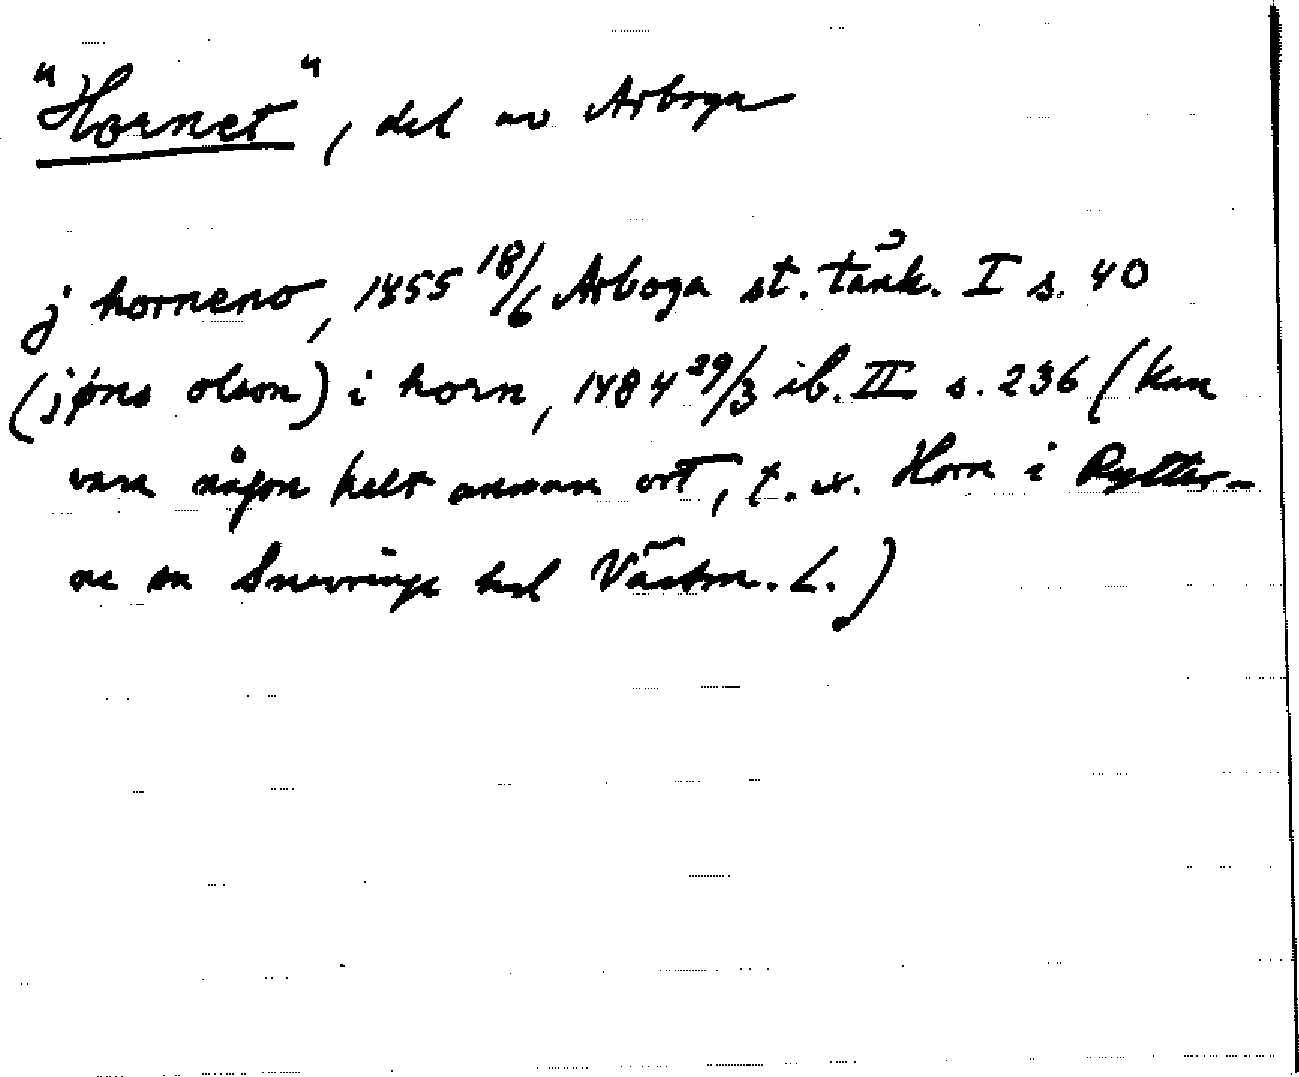 "Hornet", del av Arboga
j horneno, 1455 18/6 Arboga st. tänk. I s. 40
(jøns olson) i horn, 1484 29/3 ib. II s. 236 (kan
vara någon helt annan ort, t. ex. Horn i Rytter-
ne sn Snevringe hd Västm. L.)